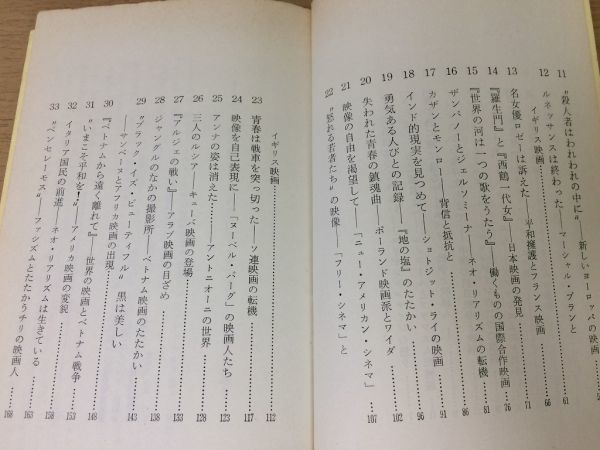 11 〝殺人者はわれわれの中に〟――新しいヨーロッパの映画……
12 ルネッサンスは終わった――マーシャル・プランと
イギリス映画……61
13 名女優ロゼーは訴えた――平和擁護とフランス映画……66
14 『羅生門』と『西鶴一代女』――日本映画の発見……71
15 『世界の河は一つの歌をうたう』――働くものの国際合作映画……76
16 ザンパノーとジェルソミーナ――ネオ・リアリズムの転機……81
17 カザンとモンロー――背信と抵抗と……86
18 インド的現実を見つめて――ショトジット・ライの映画……91
19 勇気ある人びとの記録――『地の塩』のたたかい……96
20 失われた青春の鎮魂曲――ポーランド映画派とワイダ……102
21 映像の自由を渇望して――「ニュー・アメリカン・シネマ」……107
22 〝怒れる若者たち〟の映像――「フリー・シネマ」と
イギリス映画……112
23 青春は戦車を突っ切った――ソ連映画の転機……117
24 映像を自己表現に――「ヌーベル・バーグ」の映画人たち……123
25 アンナの姿は消えた――アントニオーニの世界……128
26 三人のルシア――キューバ映画の登場……
27 『アルジェの戦い』――アラブ映画の目ざめ……133
28 ジャングルのなかの撮影所――ベトナム映画のたたかい……138
29 〝ブラック・イズ・ビューティフル〟黒は美しい
――サンベーヌとアフリカ映画の出現……143
30 『ベトナムから遠く離れて』――世界の映画とベトナム戦争……148
31 〝いまこそ平和を!〟――アメリカ映画の変貌……153
32 イタリア国民の前進――ネオ・リアリズムは生きている……158
33 〝ベンセレーモス〟――ファシズムとたたかうチリの映画人……163
168